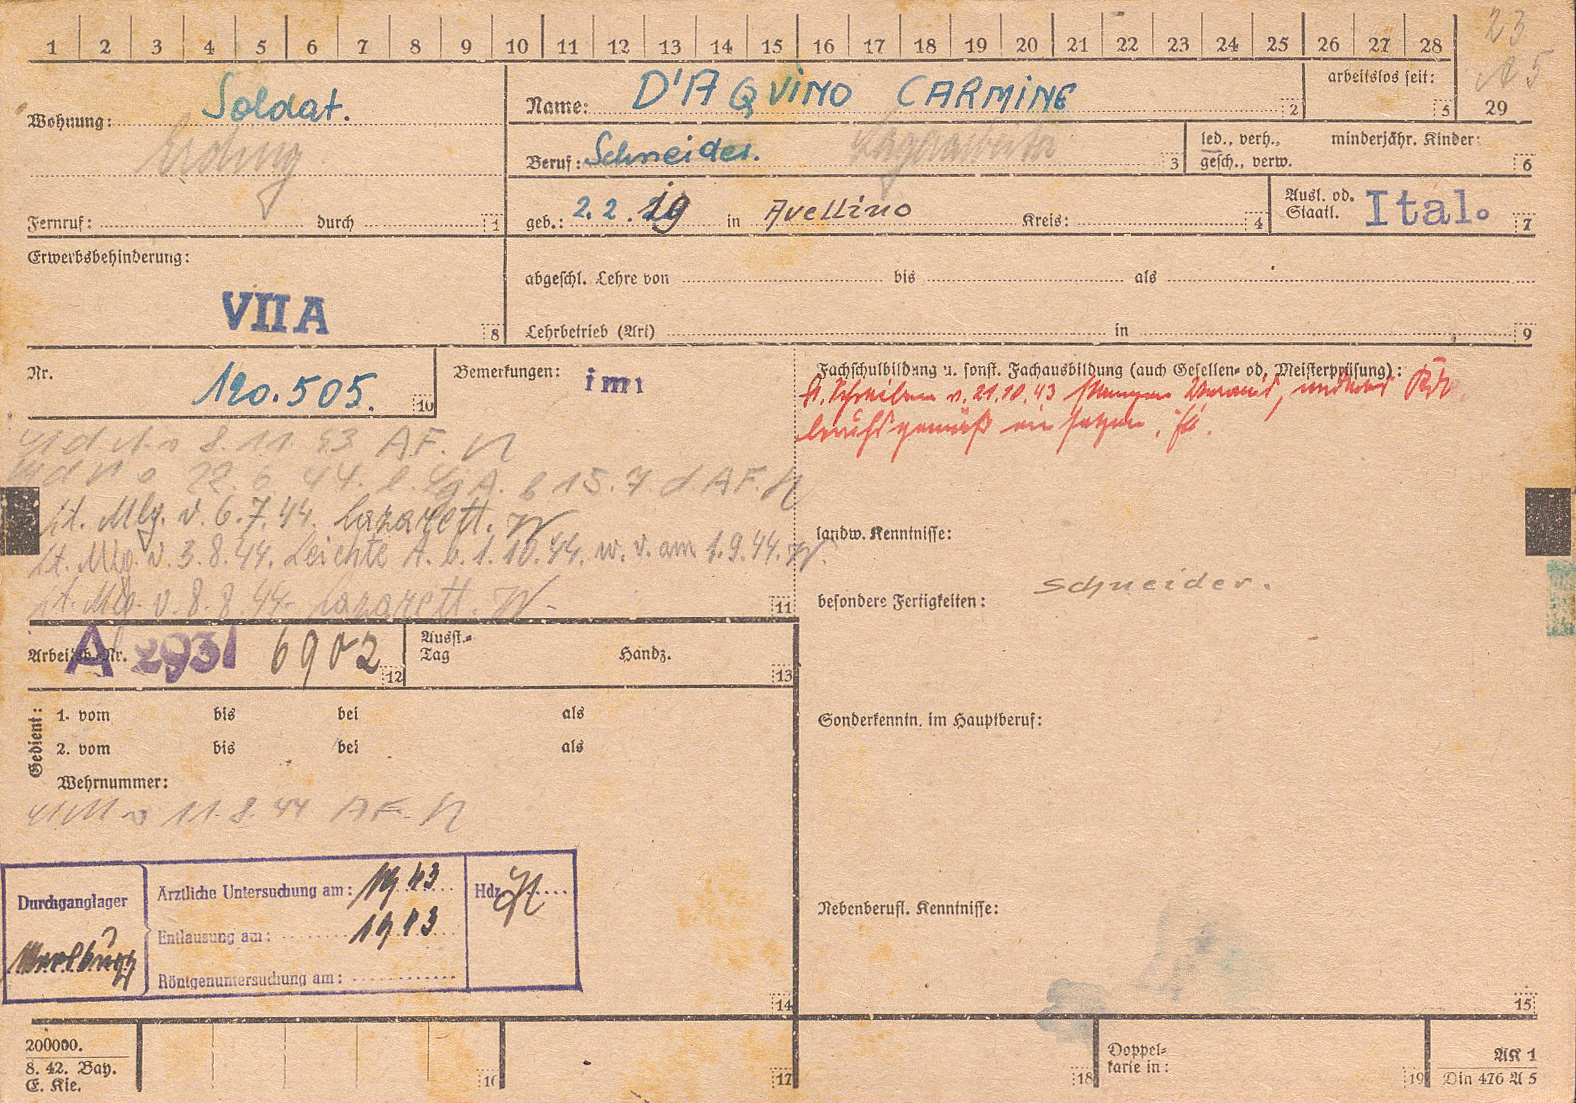 1 2 3 4 5 6 7 8 9 10 11 12 13 14 15 16 17 18 19 20 21 22 23 24 25 26 27 28 23
A 5
Wohnung: Soldat.
Erding
Fernruf: durch 1
Name: D'AQUINO CARMINE 2
arbeitslos seit: 5 29
Beruf: Schneider. 3
led., verh., minderjähr. Kinder:
gesch., verw. 6
geb.: 2.2.19 in Avellino Kreis: 4
Ausl. od. Staatl. Ital. 7
Erwerbsbehinderung:
VII A 8
abgeschl. Lehre von bis als
Lehrbetrieb (Art) in 9
Nr. 120.505. 10
Bemerkungen: imi
8.11.43 AF. N
22.6.44. 15.7. d. AF. N
lt. Mlg. v. 6.7.44. Lazarett. W
lt. Mlg. v. 3.8.44. Leichte A. b. 1.10.44. w. v. am 1.9.44. W.
lt. Mlg. v. 8.8.44. Lazarett. W. 11
Fachschulbildung u. sonst. Fachausbildung (auch Gesellen- od. Meisterprüfung):
lt. Schreiben v. 21.10.43
berufsgemäß
landw. Kenntnisse:
besondere Fertigkeiten: Schneider.
Arbeitsb.-Nr. A 2931 6902 12
Ausst.-Tag Handz. 13
Sonderkenntn. im Hauptberuf:
Gedient:
1. vom bis bei als
2. vom bis bei als
Wehrnummer:
11.8.44 AF. N
Durchganglager
Ärztliche Untersuchung am: 19 43 Hdz.
Entlausung am: 1943
Röntgenuntersuchung am:
14
Nebenberufl. Kenntnisse:
15
200000.
8. 42. Bay.
E. Kie.
16 17 18
Doppelkarte in: 19
AK 1
Din 476 A 5